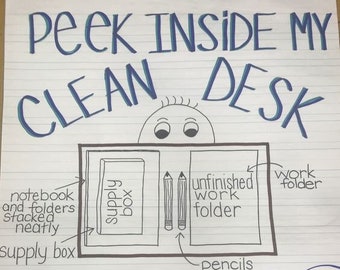 PEEK INSIDE MY
CLEAN DESK
notebook
and folders
stacked
neatly
supply box
supply
box
unfinished
work
folder
work
folder
pencils